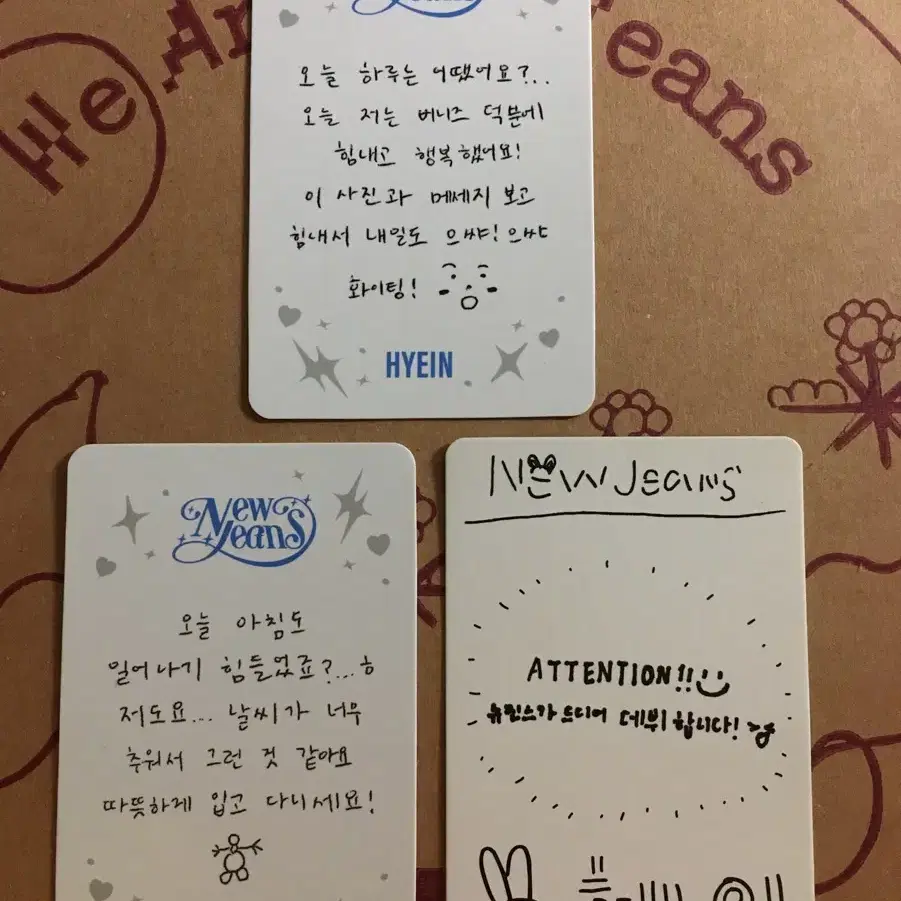 We Are
eans
오늘 하루는 어땠어요?..
오늘 저는 버니즈 덕분에
힘내고 행복했어요!
이 사진과 메세지 보고
힘내서 내일도 으쌰! 으쌰
화이팅!
HYEIN
New
Jeans
오늘 아침도
일어나기 힘들었죠?...ㅎ
저도요... 날씨가 너무
추워서 그런 것 같아요
따뜻하게 입고 다니세요!
NEW Jeans
ATTENTION!!
뉴진스가 드디어 데뷔 합니다!